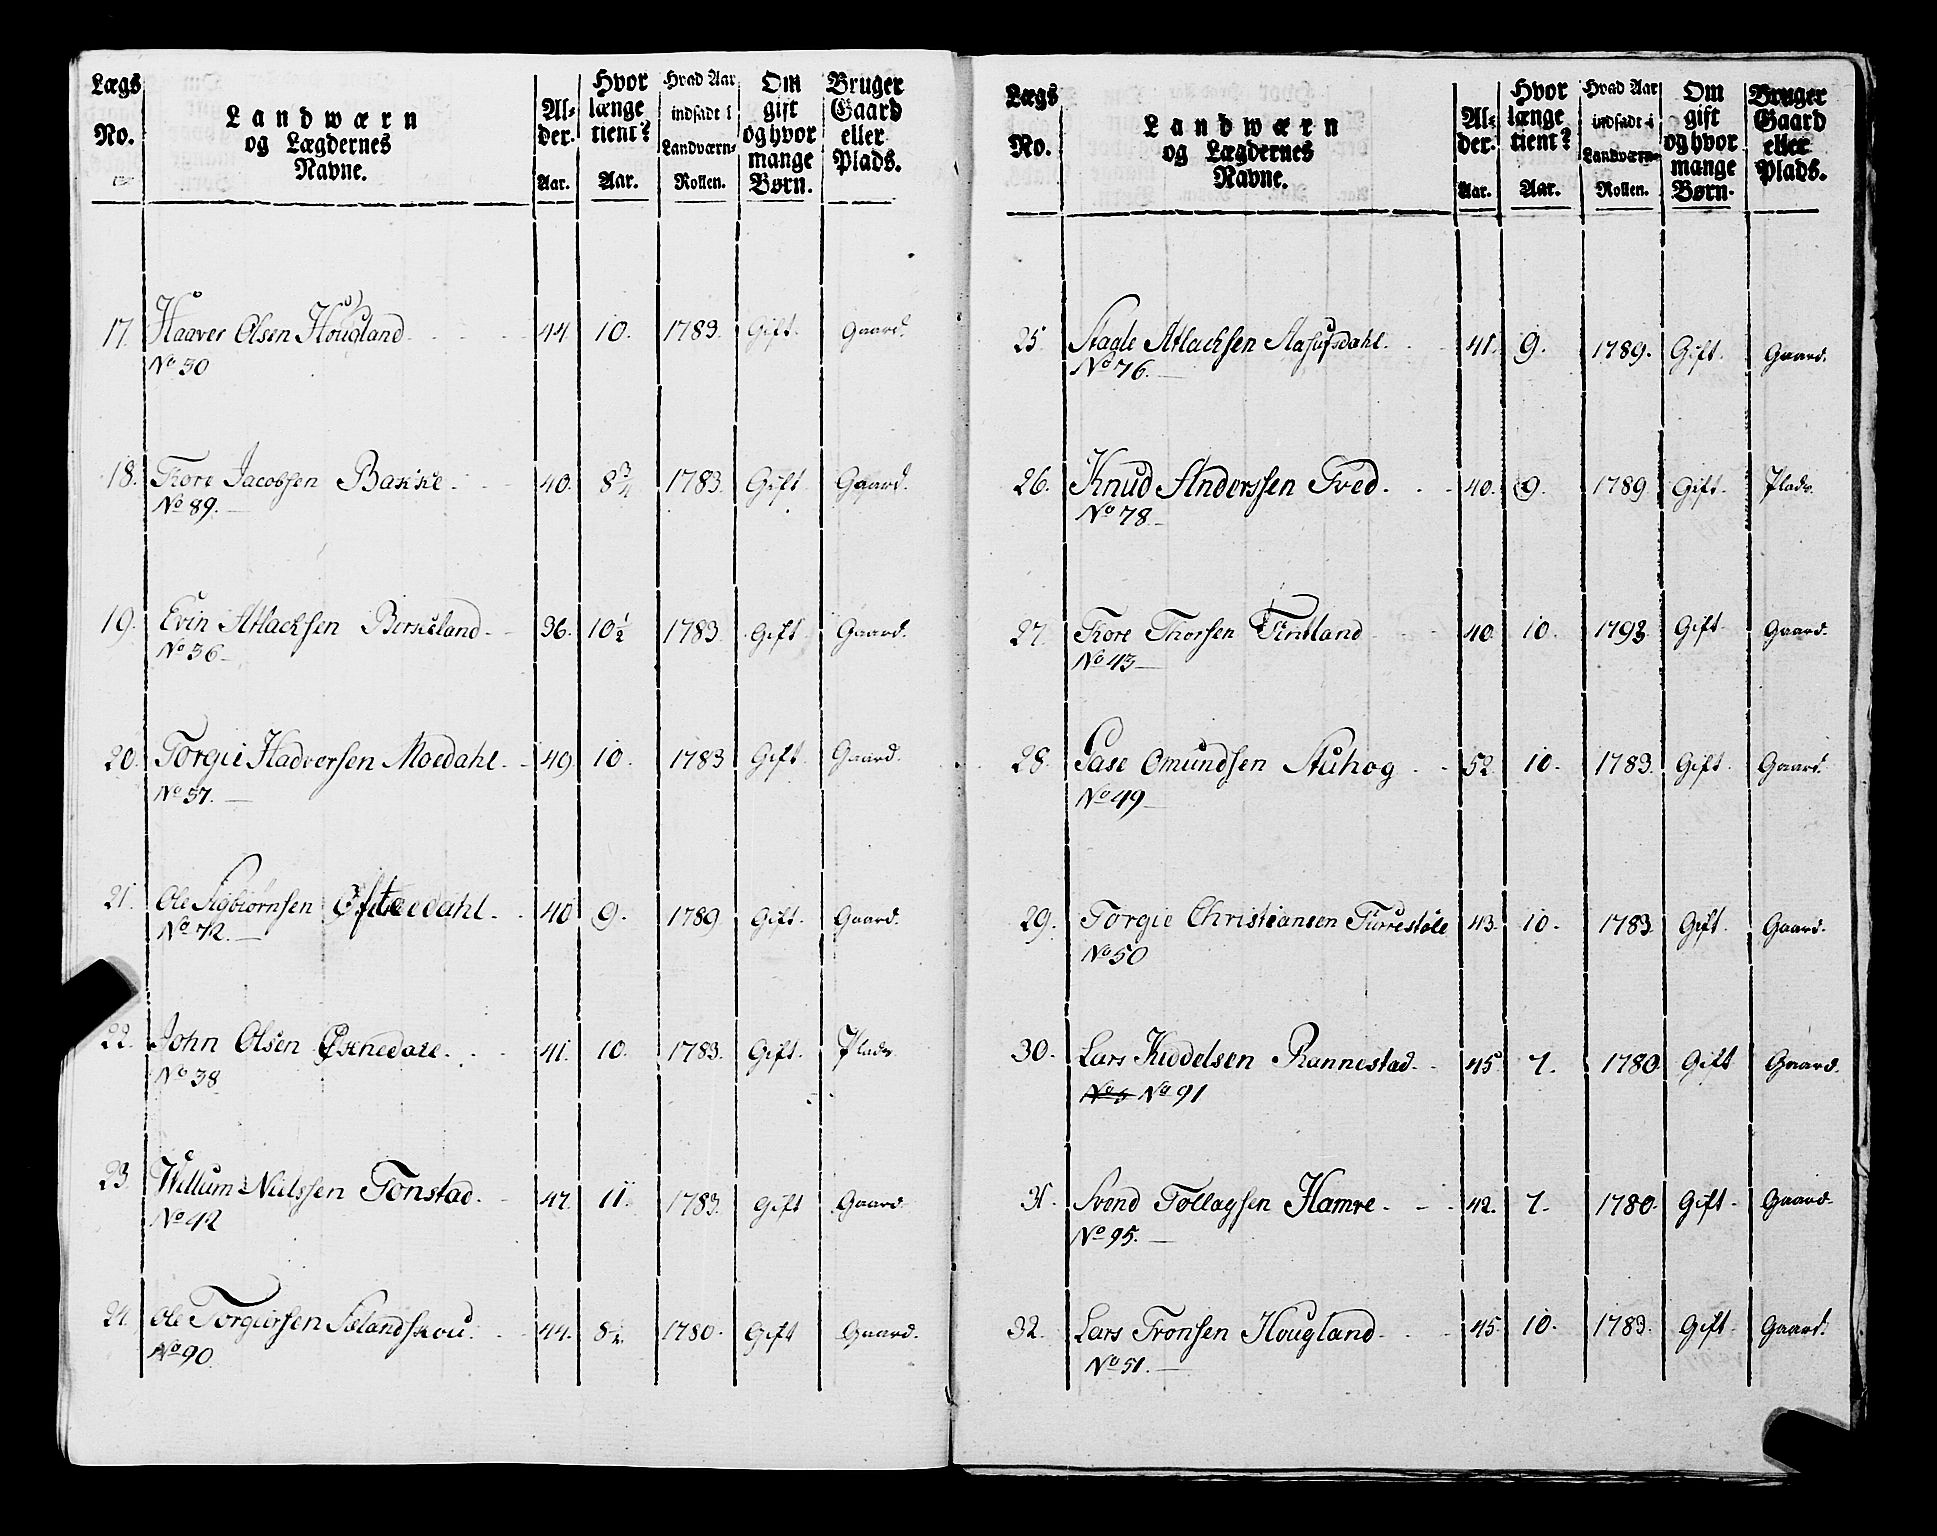 Lægs No. | Landwærn og Lægdernes Navne. | Alder. Aar. | Hvor længe tient? Aar. | Hvad Aar indsadt i Landværn-Rollen. | Om gift og hvor mange Børn. | Bruger Gaard eller Plads.
17. Haaver Olsen Hougland 44. 10. 1783. Gift. Gaard.
No 30
18. Tore Jacobsen Bakke 40. 8 3/4 1783. Gift. Gaard.
No 89.
19. Evin Atlachsen Berkeland 36. 10 1/2 1783. Gift. Gaard.
No 36
20. Torgie Hadversen Moedahl 49. 10. 1783 Gift. Gaard.
No 37.
21. Ole Sigbiørnsen 40 9. 1789 Gift. Gaard.
No 72.
22. John Olsen 41. 10. 1783. Gift. Plads
No 38
23. Willum Nielssen Tonstad. 47. 11. 1783. Gift Gaard
No 42
24. Ole Torgiersen Sælandskou. 44. 8 1/2 1780. Gift Gaard.
No 90
Lægs No. | Landwærn og Lægdernes Navne. | Alder. Aar. | Hvor længe tient? Aar. | Hvad Aar indsadt i Landværn-Rollen. | Om gift og hvor mange Børn. | Bruger Gaard eller Plads.
25. Stagle Atlachsen 41. 9. 1789. Gift. Gaard.
No 76.
26. Knud Anderssen Tved. 40. 9. 1789 Gift. Plads.
No 78
27. Tore Thorsen Fintland 40. 10. Gift. Gaard.
No 43
28. Omundsen Stuhog 52. 10. 1783. Gift. Gaard.
No 49
29. Torgie Christiansen 43. 10. 1783. Gift. Gaard.
No 50
30. Lars Kieddelsen Rannestad. 45. 7. 1780 Gift Gaard.
No 91
31. Svend Tollagsen Hamre. 42. 7. 1780. Gift. Gaard.
No 95.
32. Lars Tronsen Hougland 45. 10. 1783. Gift. Gaard.
No 51.